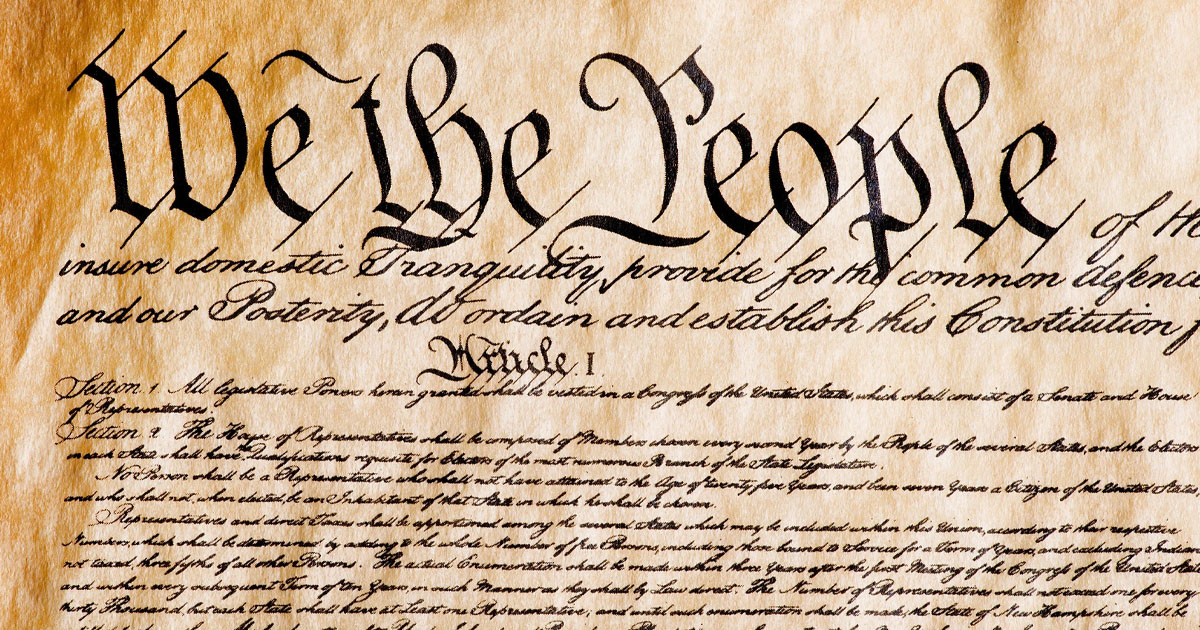 We the People of the
insure domestic Tranquility, provide for the common defence
and our Posterity, do ordain and establish this Constitution f
Article. I.
Section. 1. All legislative Powers herein granted shall be vested in a Congress of the United States, which shall consist of a Senate and House
of Representatives.
Section. 2. The House of Representatives shall be composed of Members chosen every second Year by the People of the several States, and the Electors
in each State shall have the Qualifications requisite for Electors of the most numerous Branch of the State Legislature.
No Person shall be a Representative who shall not have attained to the Age of twenty five Years, and been seven Years a Citizen of the United States,
and who shall not, when elected, be an Inhabitant of that State in which he shall be chosen.
Representatives and direct Taxes shall be apportioned among the several States which may be included within this Union, according to their respective
Numbers, which shall be determined by adding to the whole Number of free Persons, including those bound to Service for a Term of Years, and excluding Indians
not taxed, three fifths of all other Persons. The actual Enumeration shall be made within three Years after the first Meeting of the Congress of the United States,
and within every subsequent Term of ten Years, in such Manner as they shall by Law direct. The Number of Representatives shall not exceed one for every
thirty Thousand, but each State shall have at Least one Representative; and until such enumeration shall be made, the State of New Hampshire shall be